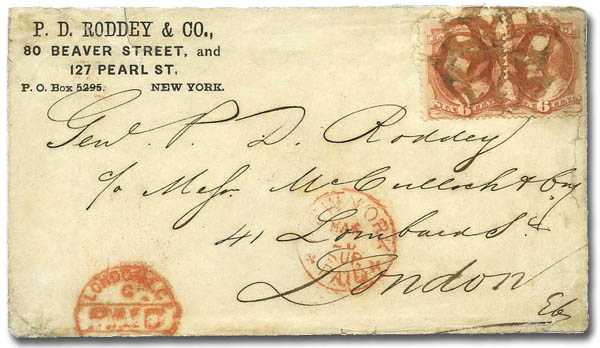 P. D. RODDEY & CO.,
80 BEAVER STREET, and
127 PEARL ST.
P. O. Box 5295. NEW YORK.
6 6
Genl. P. D. Roddey
c/o Messrs. McCulloch & Co
41 Lombard St
London
NEW YORK
MAR
SUP
PAID
LONDON. E.C
PAID